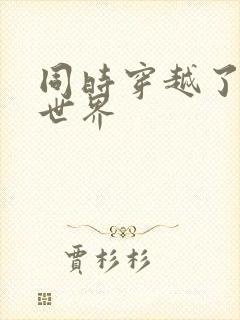 同時穿越了
世界
賈杉杉